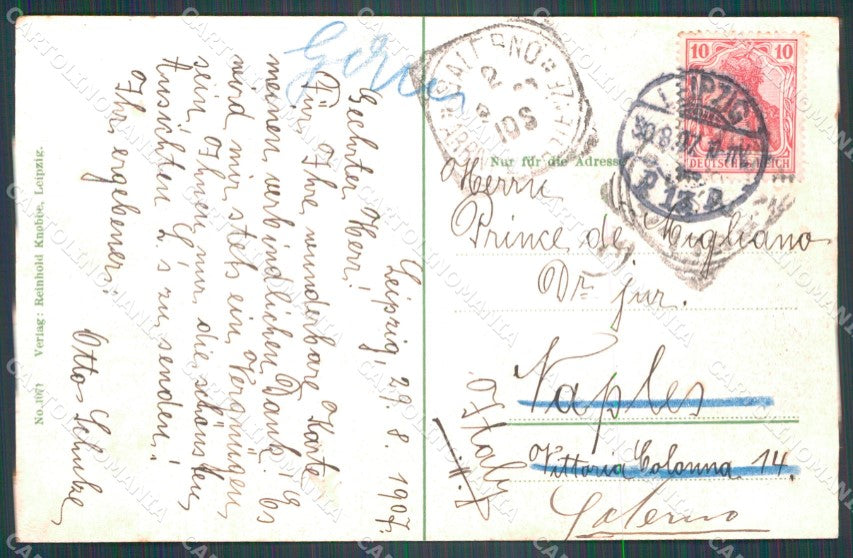 Leipzig, 29. 8. 1907.
Geehrter Herr!
Für Ihre wunderbare Karte
meinen verbindlichen Dank. Es
wird mir stets ein Vergnügen
sein, Ihnen nur die schönsten
Ansichten L's zu senden!
Ihr ergebener
Otto Schulze
No. 1071 Verlag: Reinhold Knobbe, Leipzig.
10 10
DEUTSCHES REICH
LEIPZIG
30.8.07
13
SALERNO
Nur für die Adresse
Herrn
Prince de Migliano
Dr. jur.
Naples
Vittoria Colonna 14.
Salerno
Italy
CARTOLINOMANIA